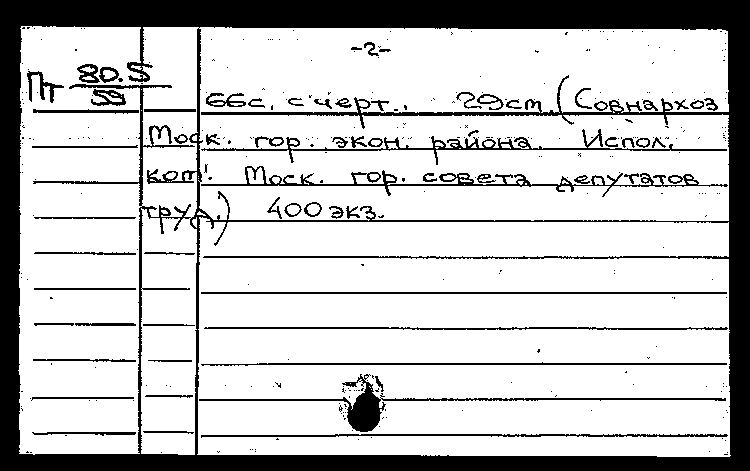 -2-
Пт 80.5
59
66с. с черт. 29cm. (Совнархоз
Моск. гор. экон. района. Испол.
ком. Моск. гор. совета депутатов
труд.) 400 экз.